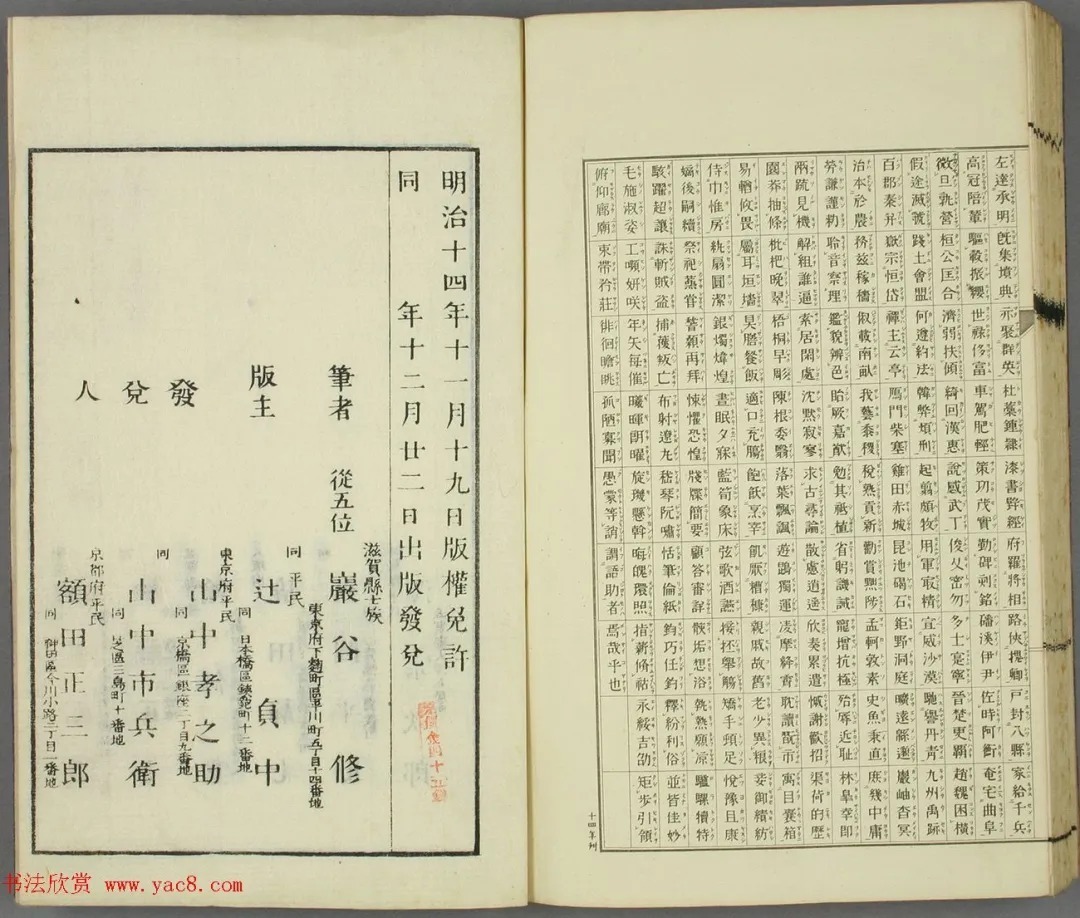 左達承明 既集墳典 亦聚群英 杜藁鍾隸 漆書壁經 府羅將相 路俠槐卿 戸封八縣 家給千兵
高冠陪輦 驅轂振纓 世祿侈富 車駕肥輕 策功茂實 勒碑刻銘 磻溪伊尹 佐時阿衡 奄宅曲阜
微旦孰營 桓公匡合 濟弱扶傾 綺回漢惠 說感武丁 俊乂密勿 多士寔寧 晉楚更霸 趙魏困橫
假途滅虢 踐土會盟 何遵約法 韓弊煩刑 起翦頗牧 用軍取精 宣威沙漠 馳譽丹青 九州禹跡
百郡秦并 嶽宗恒岱 禪主云亭 鴈門紫塞 雞田赤城 昆池碣石 鉅野洞庭 曠遠緜邈 巖岫杳冥
治本於農 務茲稼穡 俶載南畝 我藝黍稷 稅熟貢新 勸賞黜陟 孟軻敦素 史魚秉直 庶幾中庸
勞謙謹勅 聆音察理 鑑貌辨色 貽厥嘉猷 勉其祗植 省躬譏誡 寵增抗極 殆辱近恥 林皋幸即
兩疏見機 解組誰逼 索居閑處 沈默寂寥 求古尋論 散慮逍遥 欣奏累遣 慼謝歡招 渠荷的歷
園莽抽條 枇杷晚翠 梧桐早彫 陳根委翳 落葉飄颻 遊鵾獨運 凌摩絳霄 耽讀翫市 寓目囊箱
易輶攸畏 屬耳垣墻 具膳餐飯 適口充腸 飽飫烹宰 飢厭糟糠 親戚故舊 老少異糧 妾御績紡
侍巾帷房 紈扇圓潔 銀燭煒煌 晝眠夕寐 藍筍象床 弦歌酒讌 接桮舉觴 矯手頓足 悅豫且康
嫡後嗣續 祭祀蒸嘗 稽顙再拜 悚懼恐惶 牋牒簡要 顧答審詳 骸垢想浴 執熱願凉 驢騾犢特
駭躍超驤 誅斬賊盜 捕獲叛亡 布射遼丸 嵇琴阮嘯 恬筆倫紙 鈞巧任釣 釋紛利俗 並皆佳妙
毛施淑姿 工嚬妍咲 年矢每催 曦暉朗曜 旋璣懸斡 晦魄環照 指薪脩祜 永綏吉劭 矩步引領
俯仰廊廟 束帶矜莊 徘徊瞻眺 孤陋寡聞 愚蒙等誚 謂語助者 焉哉乎也
十四年刻
明治十四年十一月十九日版權免許
同 年十二月廿二日出版發兌
筆者 從五位 巖谷 修
滋賀縣士族
東京府下麹町區平川町五丁目十四番地
版主 辻 貞中
同 平民
日本橋區鉄砲町十二番地
發兌人
山中孝之助
東京府平民
京橋區銀座二丁目九番地
山中市兵衛
同
同 芝區三島町十番地
額田正二郎
京都府平民
同 神田區今川小路二丁目一番地
书法欣赏 www.yac8.com